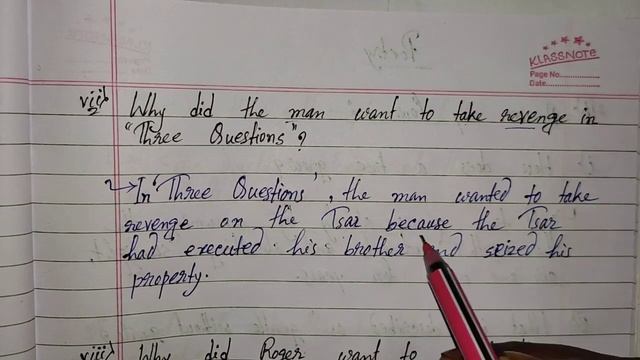 Poetry
KLASSNOTE
Page No.
Date
vii) Why did the man want to take revenge in
"Three Questions"?
In 'Three Questions', the man wanted to take
revenge on the Tsar because the Tsar
had executed his brother and seized his
property.
viii) Why did Roger want to